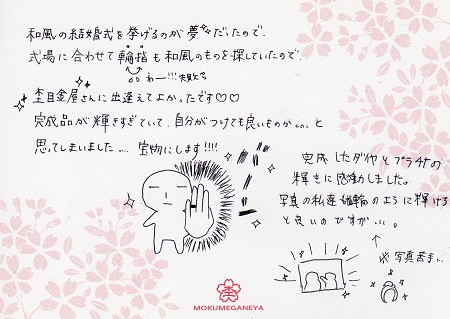 和風の結婚式を挙げるのが夢だったので、
式場に合わせて輪指も和風のものを探していたので、
わー!!!失敗
杢目金屋さんに出逢えてよかったです♡♡
完成品が輝きすぎていて、自分がつけても良いものか...と
思ってしまいました... 宝物にします!!!!
完成したダイヤとプラチナの
輝きに感動しました。
写真の私達も指輪のように輝ける
と良いのですが...。
写真苦手...
MOKUMEGANEYA